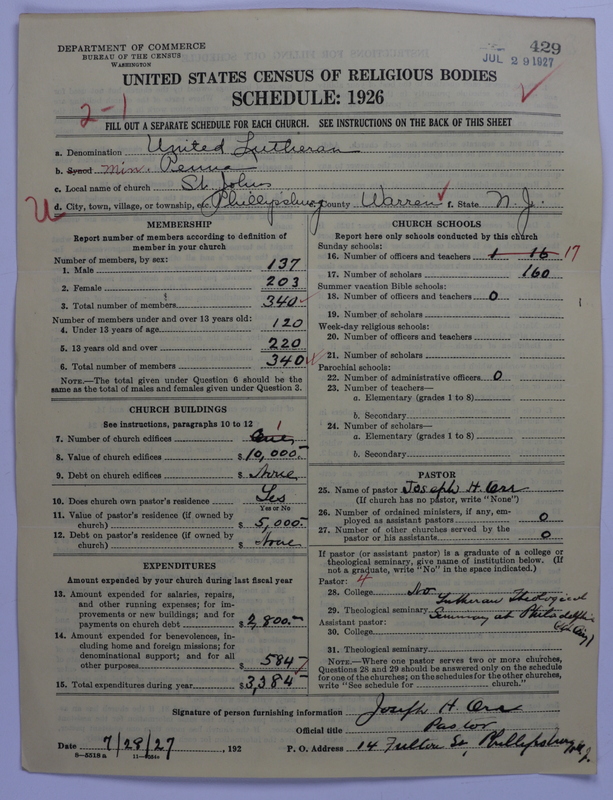 DEPARTMENT OF COMMERCE
BUREAU OF THE CENSUS
WASHINGTON
429
JUL 29 1927
UNITED STATES CENSUS OF RELIGIOUS BODIES
SCHEDULE: 1926
2-1
FILL OUT A SEPARATE SCHEDULE FOR EACH CHURCH. SEE INSTRUCTIONS ON THE BACK OF THIS SHEET
a. Denomination United Lutheran
b. Synod Min. Penna
c. Local name of church St. Johns
U
d. City, town, village, or township, etc. Phillipsburg County Warren f. State N.J.
MEMBERSHIP
Report number of members according to definition of
member in your church
Number of members, by sex:
1. Male 137
2. Female 203
3. Total number of members 340
Number of members under and over 13 years old:
4. Under 13 years of age 120
5. 13 years old and over 220
6. Total number of members 340
NOTE.—The total given under Question 6 should be the
same as the total of males and females given under Question 3.
CHURCH BUILDINGS
See instructions, paragraphs 10 to 12
7. Number of church edifices One 1
8. Value of church edifices $10,000.-
9. Debt on church edifices $ None
10. Does church own pastor's residence Yes
Yes or No
11. Value of pastor's residence (if owned by
church) $ 5,000.-
12. Debt on pastor's residence (if owned by
church) $ None
EXPENDITURES
Amount expended by your church during last fiscal year
13. Amount expended for salaries, repairs,
and other running expenses; for im-
provements or new buildings; and for
payments on church debt $2,800.-
14. Amount expended for benevolences, in-
cluding home and foreign missions; for
denominational support; and for all
other purposes $ 584-
15. Total expenditures during year $3,384-
CHURCH SCHOOLS
Report here only schools conducted by this church
Sunday schools:
16. Number of officers and teachers 1 16 17
17. Number of scholars 160
Summer vacation Bible schools:
18. Number of officers and teachers 0
19. Number of scholars
Week-day religious schools:
20. Number of officers and teachers
21. Number of scholars
Parochial schools:
22. Number of administrative officers 0
23. Number of teachers—
a. Elementary (grades 1 to 8)
b. Secondary
24. Number of scholars—
a. Elementary (grades 1 to 8)
b. Secondary
PASTOR
25. Name of pastor Joseph H. Orr
(If church has no pastor, write "None")
26. Number of ordained ministers, if any, em-
ployed as assistant pastors 0
27. Number of other churches served by the
pastor or his assistants 0
If pastor (or assistant pastor) is a graduate of a college or
theological seminary, give name of institution below. (If
not a graduate, write "No" in the space indicated.)
Pastor: 4
28. College No
29. Theological seminary Lutheran Theological
Seminary at Philadelphia
Assistant pastor:
30. College
31. Theological seminary
NOTE.—Where one pastor serves two or more churches,
Questions 28 and 29 should be answered only on the schedule
for one of the churches; on the schedules for the other churches,
write "See schedule for church."
Signature of person furnishing information Joseph H Orr
Official title Pastor
Date 7/28/27, 192
P. O. Address 14 Fulton St, Phillipsburg N. J.
8—5518 a